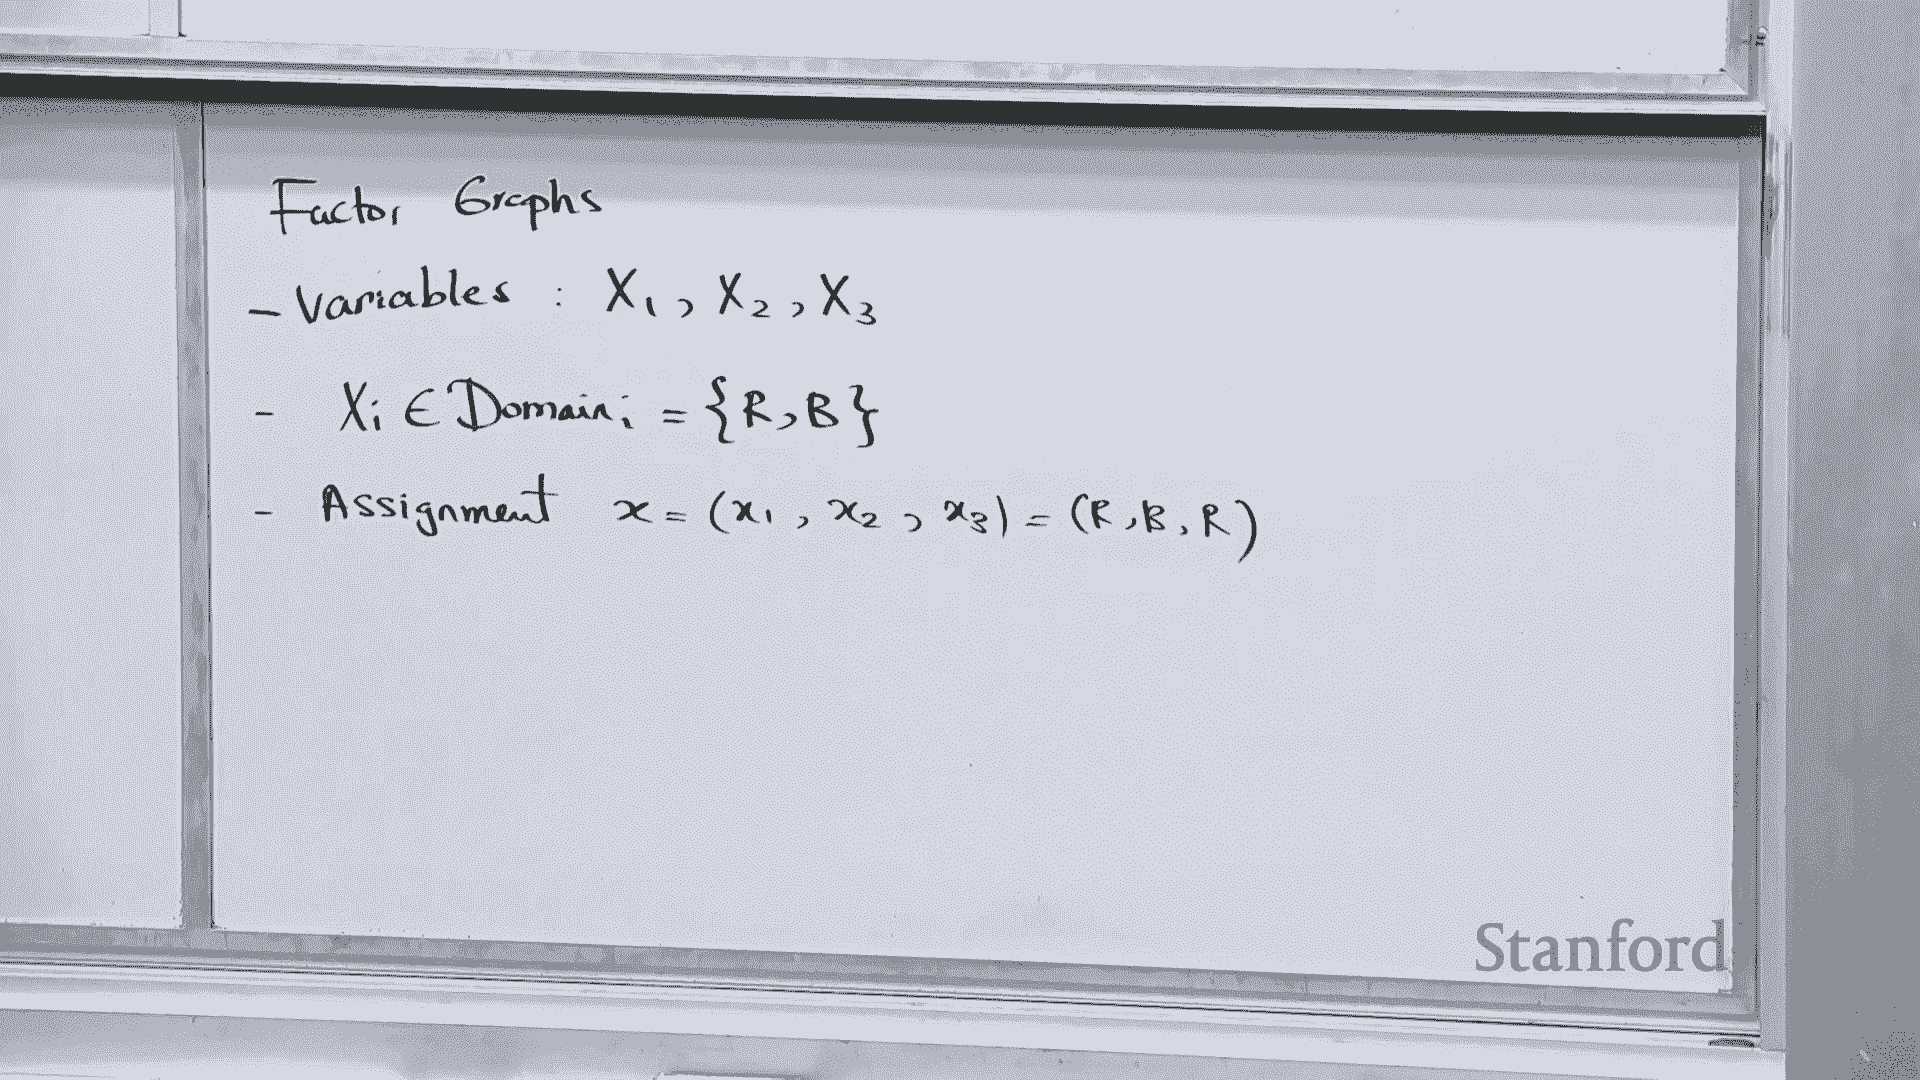 Factor Graphs
- Variables : X₁, X₂, X₃
- Xᵢ ∈ Domainᵢ = {R, B}
- Assignment x = (x₁, x₂, x₃) = (R, B, R)
Stanford